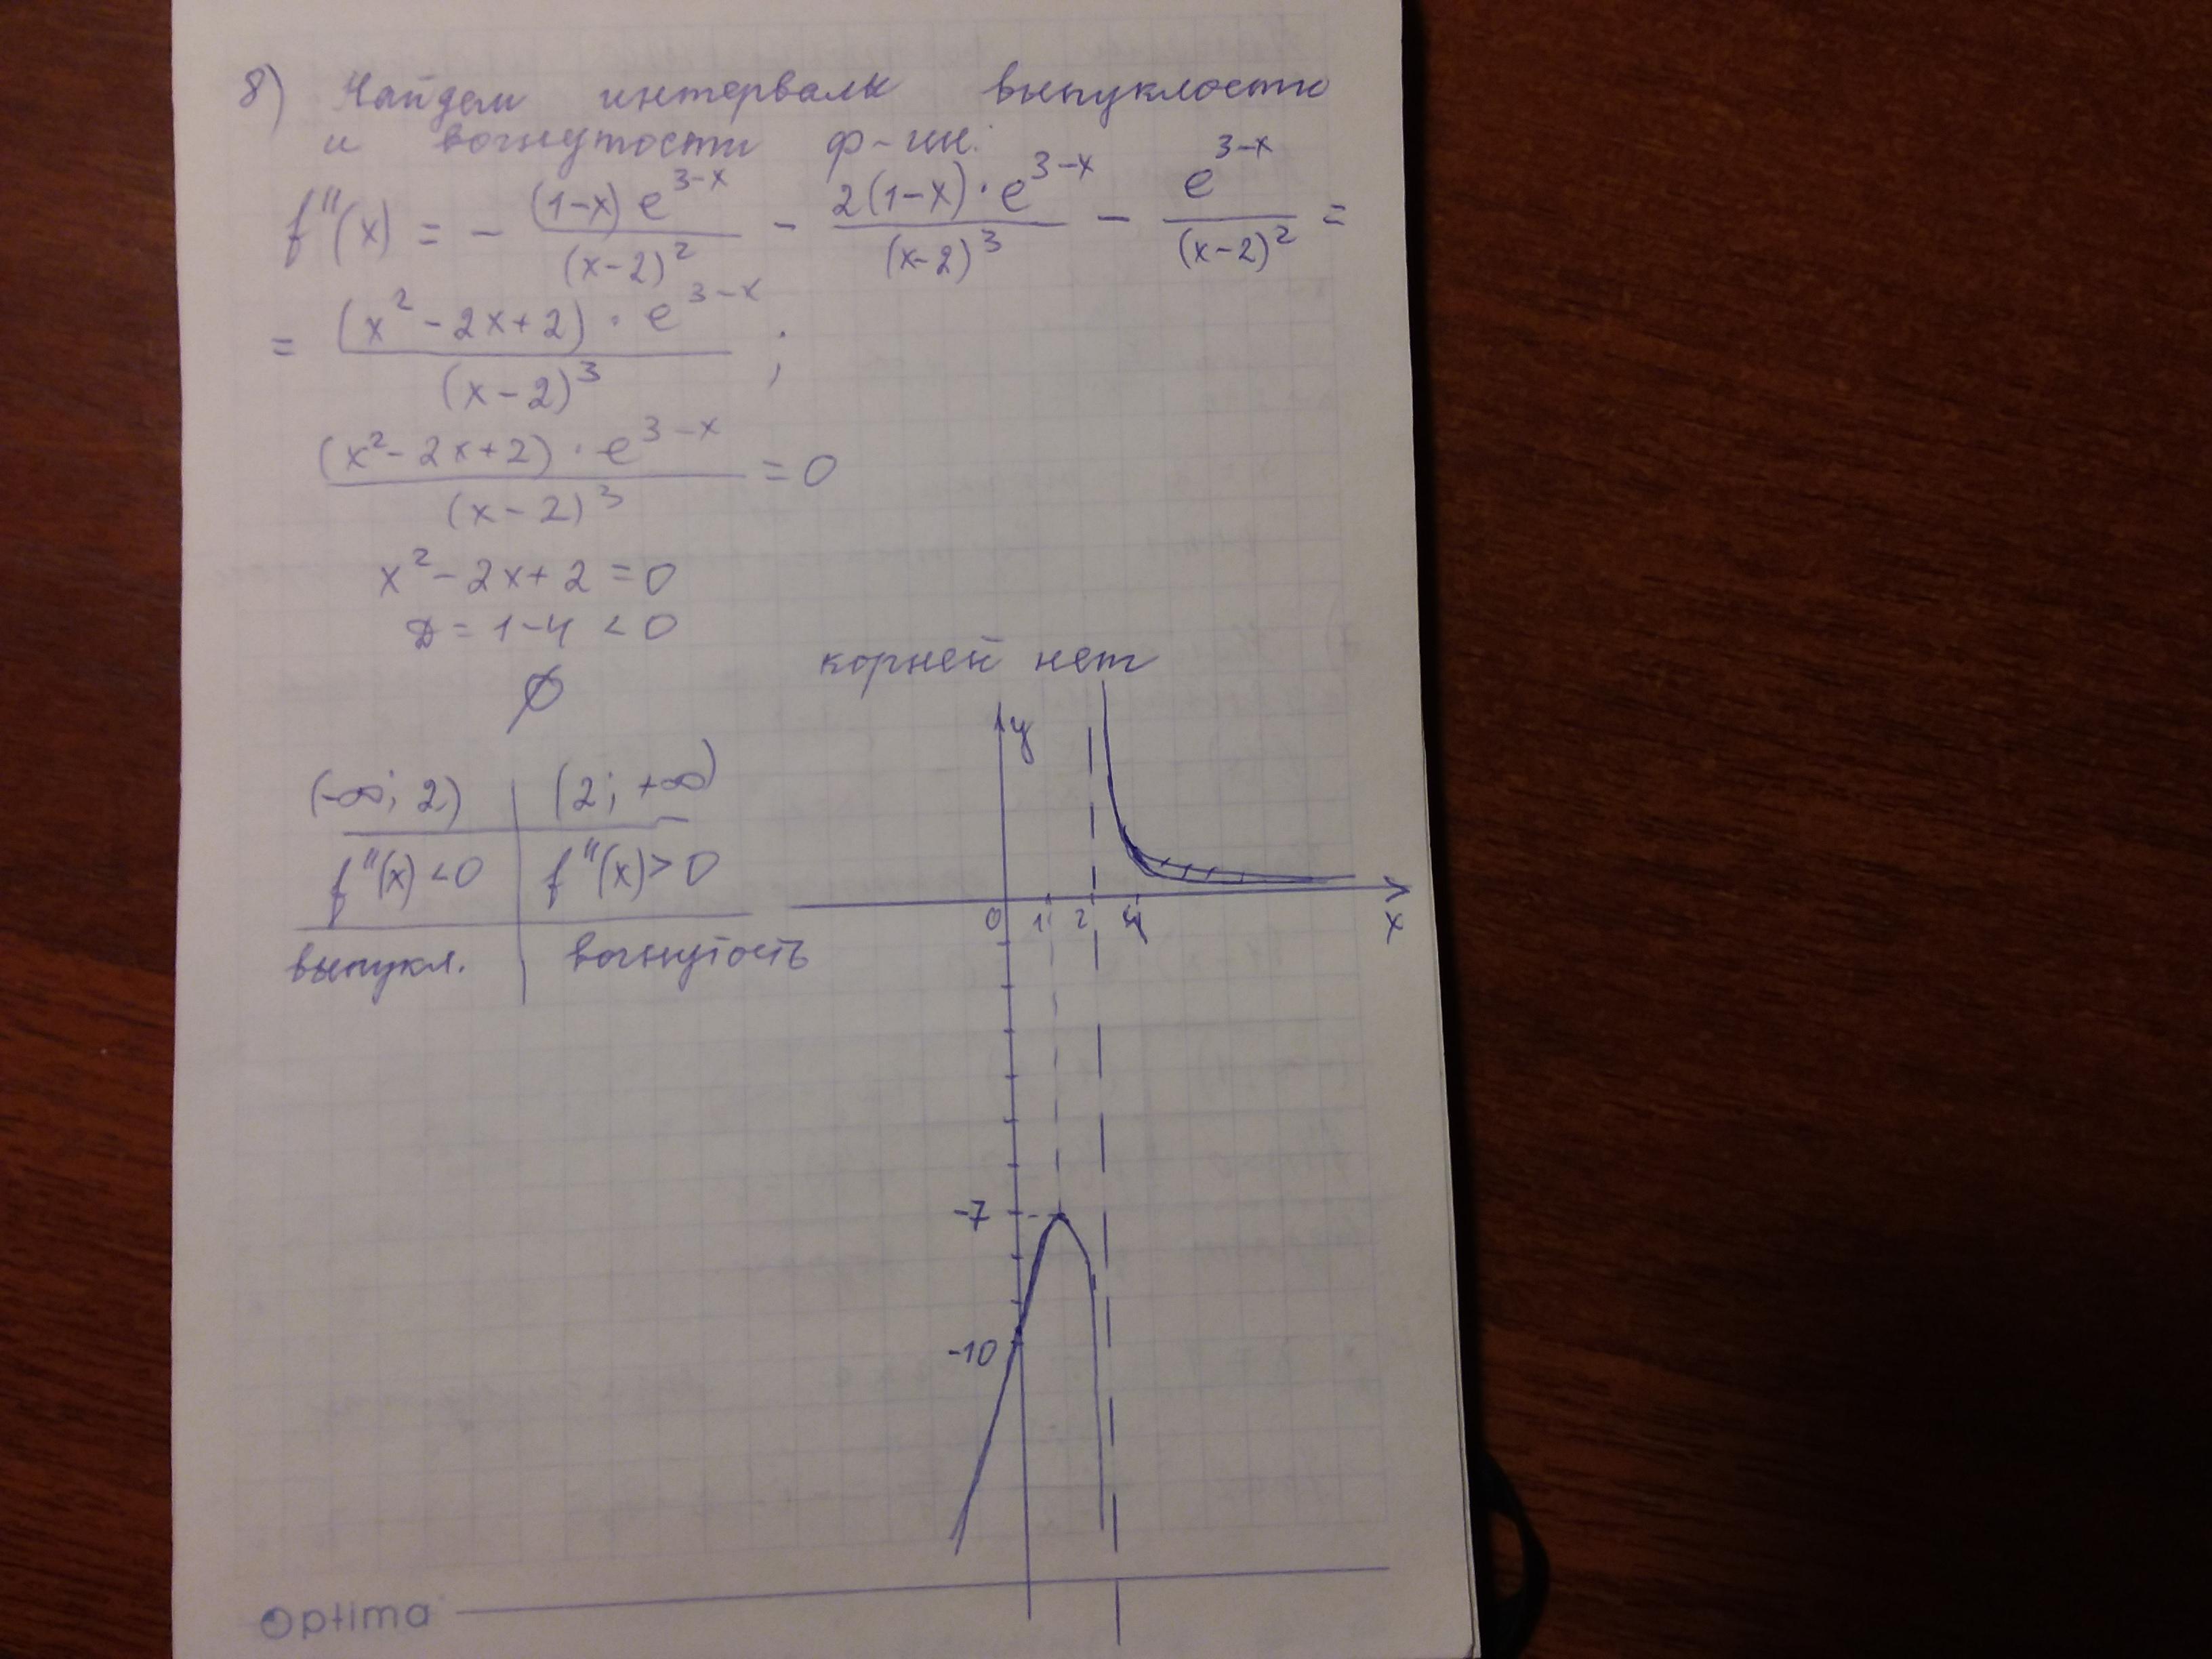 8) Найдем интервалы выпуклости
и вогнутости ф-ии:
f''(x) = - (1-x) e^{3-x} / (x-2)^2 - 2(1-x)·e^{3-x} / (x-2)^3 - e^{3-x} / (x-2)^2 =
= (x^2 - 2x + 2)·e^{3-x} / (x-2)^3 ;
(x^2 - 2x + 2)·e^{3-x} / (x-2)^3 = 0
x^2 - 2x + 2 = 0
D = 1-4 < 0
∅ корней нет
(-∞; 2) | (2; +∞)
f''(x) < 0 | f''(x) > 0
выпукл. | вогнутость
y
0 1 2 x
-7
-10
Optima